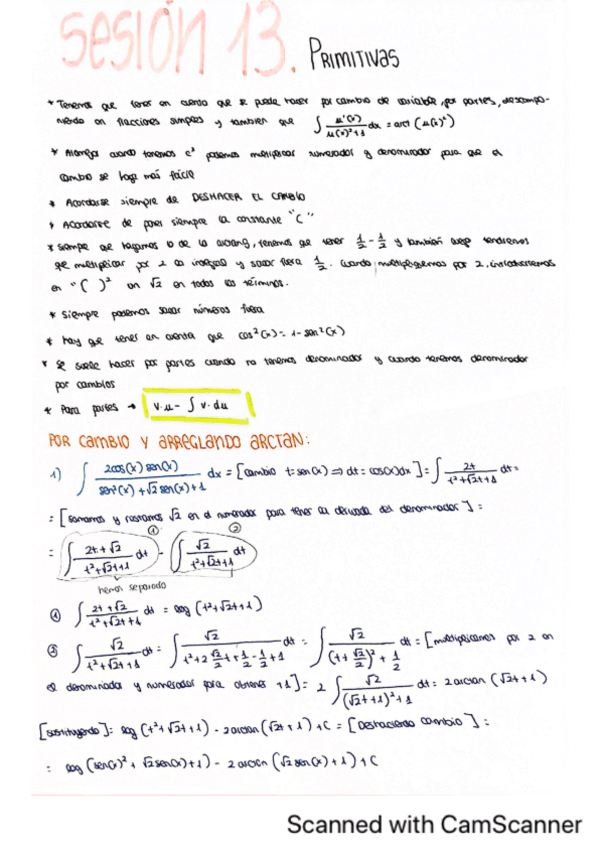 Sesión 13. PRIMITIVAS
* Tenemos que tener en cuenta que se puede hacer por cambio de variable, por partes, descompo-
niendo en fracciones simples y también que ∫ μ'(x)/(μ(x)²+1) dx = arct (μ(x)²)
* cuando tenemos eˣ podemos multiplicar numerador y denominador para que el
cambio se haga más fácil
* Acordarse siempre de DESHACER EL CAMBIO
* Acordarse de poner siempre la constante "C"
* Siempre que hagamos lo de la arctang, tenemos que tener 1/2 - 1/2 y también luego tendremos
que multiplicar por 2 la integral y sacar fuera 1/2. Cuando multipliquemos por 2, introduciremos
en "( )²" un √2 en todos los términos.
* Siempre podemos sacar números fuera
* Hay que tener en cuenta que cos²(x) = 1 - sen²(x)
* Se suele hacer por partes cuando no tenemos denominador y cuando tenemos denominador
por cambios
* Para partes → v·u - ∫ v·du
POR CAMBIO Y ARREGLANDO ARCTAN:
1) ∫ 2cos(x)sen(x)/(sen²(x)+√2 sen(x)+1) dx = [cambio t=sen(x) ⇒ dt=cos(x)dx] = ∫ 2t/(t²+√2t+1) dt =
= [sumamos y restamos √2 en el numerador para tener la derivada del denominador] =
① ②
= ∫ (2t+√2)/(t²+√2t+1) dt - ∫ √2/(t²+√2t+1) dt
hemos separado
① ∫ (2t+√2)/(t²+√2t+1) dt = log (t²+√2t+1)
② ∫ √2/(t²+√2t+1) dt = ∫ √2/(t²+2 √2/2 t+1/2-1/2+1) dt = ∫ √2/((t+√2/2)²+1/2) dt = [multiplicamos por 2 en
el denominador y numerador para obtener +1] = 2 ∫ √2/((√2t+1)²+1) dt = 2arctan (√2t+1)
[sustituyendo] = log (t²+√2t+1) - 2arctan (√2t+1) + C = [Deshaciendo cambio] =
= log (sen(x)² + √2sen(x)+1) - 2 arctan (√2 sen(x)+1) + C
Scanned with CamScanner